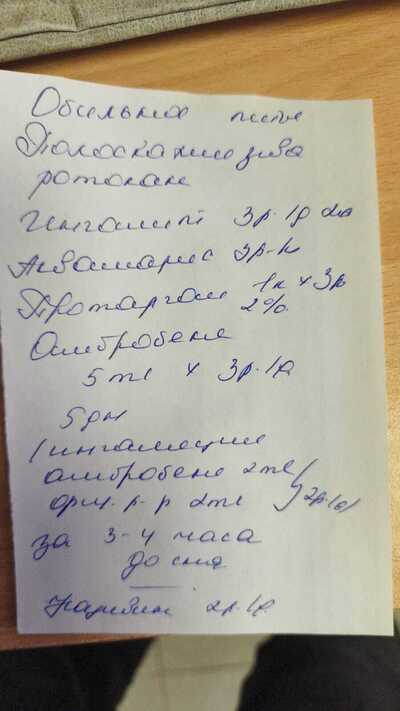 Обильное питье
Полоскание зева
ротокан
Ингалипт 3р. 1д
Аквамарис 3р-н
Протаргол 1к х 3р
2%
Амбробене
5 ml х 3р. 1д
5 дн
ингаляции
амбробене 2ml
физ. р-р 2ml 2р/д
за 3-4 часа
до сна
2р. 1д